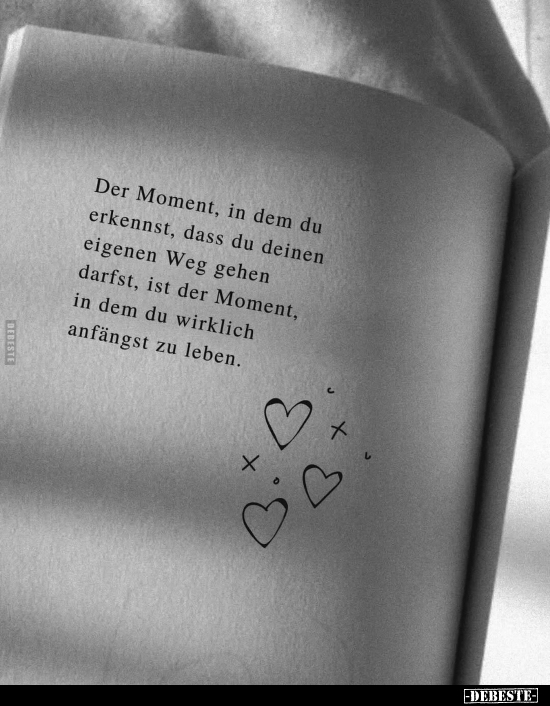 Der Moment, in dem du
erkennst, dass du deinen
eigenen Weg gehen
darfst, ist der Moment,
in dem du wirklich
anfängst zu leben.
DEBESTE
-DEBESTE-